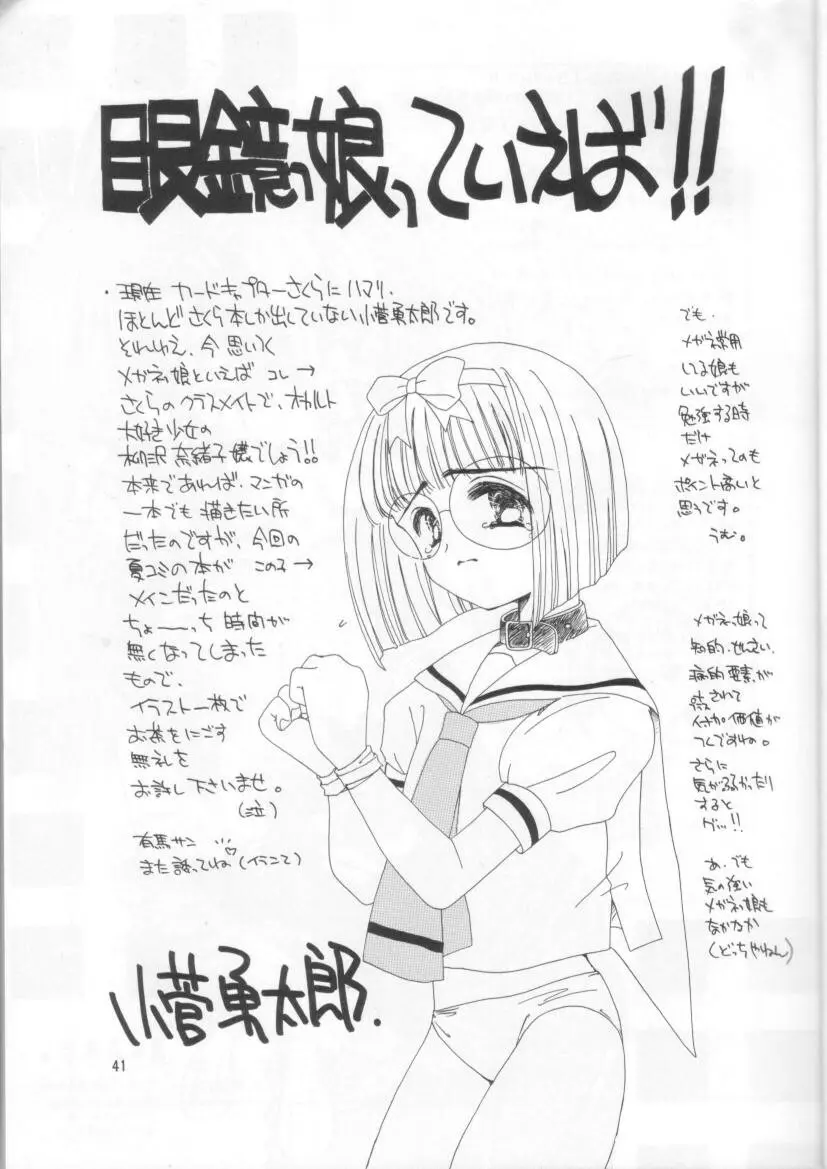 眼鏡っ娘っていえば!!
・現在 カードキャプターさくらにハマり、
ほとんどさくら本しか出していない小菅勇太郎です。
それゆえ、今思いつく
メガネっ娘といえば コレ→
さくらのクラスメイトで、オカルト
大好き少女の
柳沢奈緒子嬢でしょう!!
本来であれば、マンガの
一本でも描きたい所
だったのですが、今回の
夏コミの本が この子→
メインだったのと
ちょーーっち時間が
無くなってしまった
もので、
イラスト一枚で
お茶をにごす
無礼を
お許し下さいませ。
(泣)
有馬サン
また誘ってね
小菅勇太郎.
でも、
メガネ常用
している娘も
いいですが
勉強する時
だけ
メガネってのも
ポイント高いと
思うです。
うむ。
メガネっ娘って
知的、
病的要素が
付加価値が
つくですね。
さらに
気が弱かったり
すると
グッ…!!
あ、でも
気の強い
メガネっ娘も
なかなか
(どっちやねん)
41